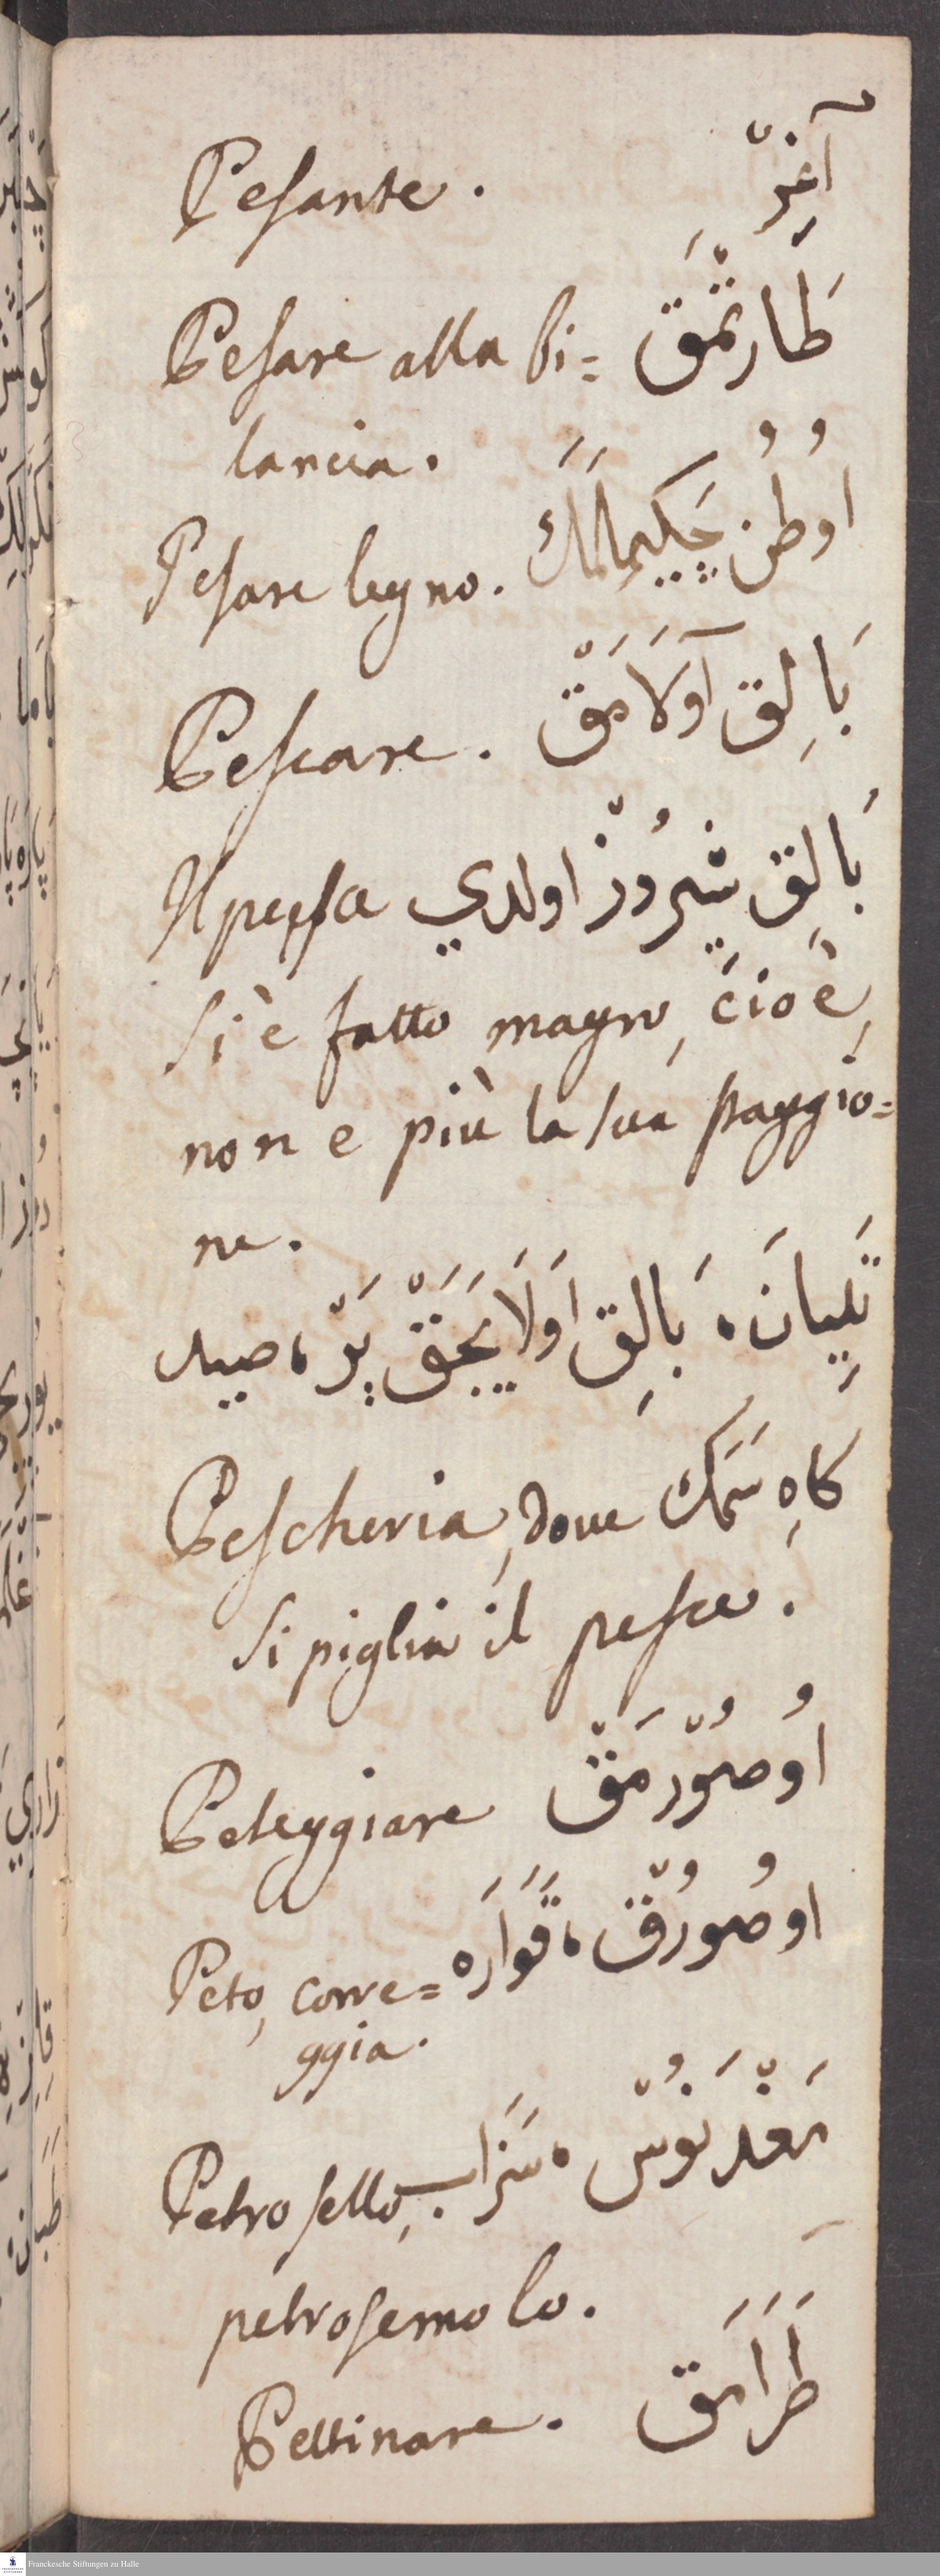 Pesante. آغِرْ
Pesare alla bi= طَارتْمَق
lancia.
Pesare legno. اوُطُن چَكيمالَمَك
Pescare. بَالِق آوَلَامَقْ
Il pesce بَالِق شيرُوزْ اولدي
si è fatto magro, cioè,
non e più la sua staggio=
ne.
تَلِيَانَ، بَالِق اَوَلَايَجَقْ يَرْ، صيد
Pescheria, dove كاهِ سَمَك
si piglia il pesce.
Peteggiare اوُصُورْمَقْ
Peto, corre= اوُصُورُقْ، قَوَارَه
ggia.
Petrosello, مَعْدَنُوسْ، سَزَاب
petrosemolo.
Pettinare. طَرَامَق
Franckesche Stiftungen zu Halle